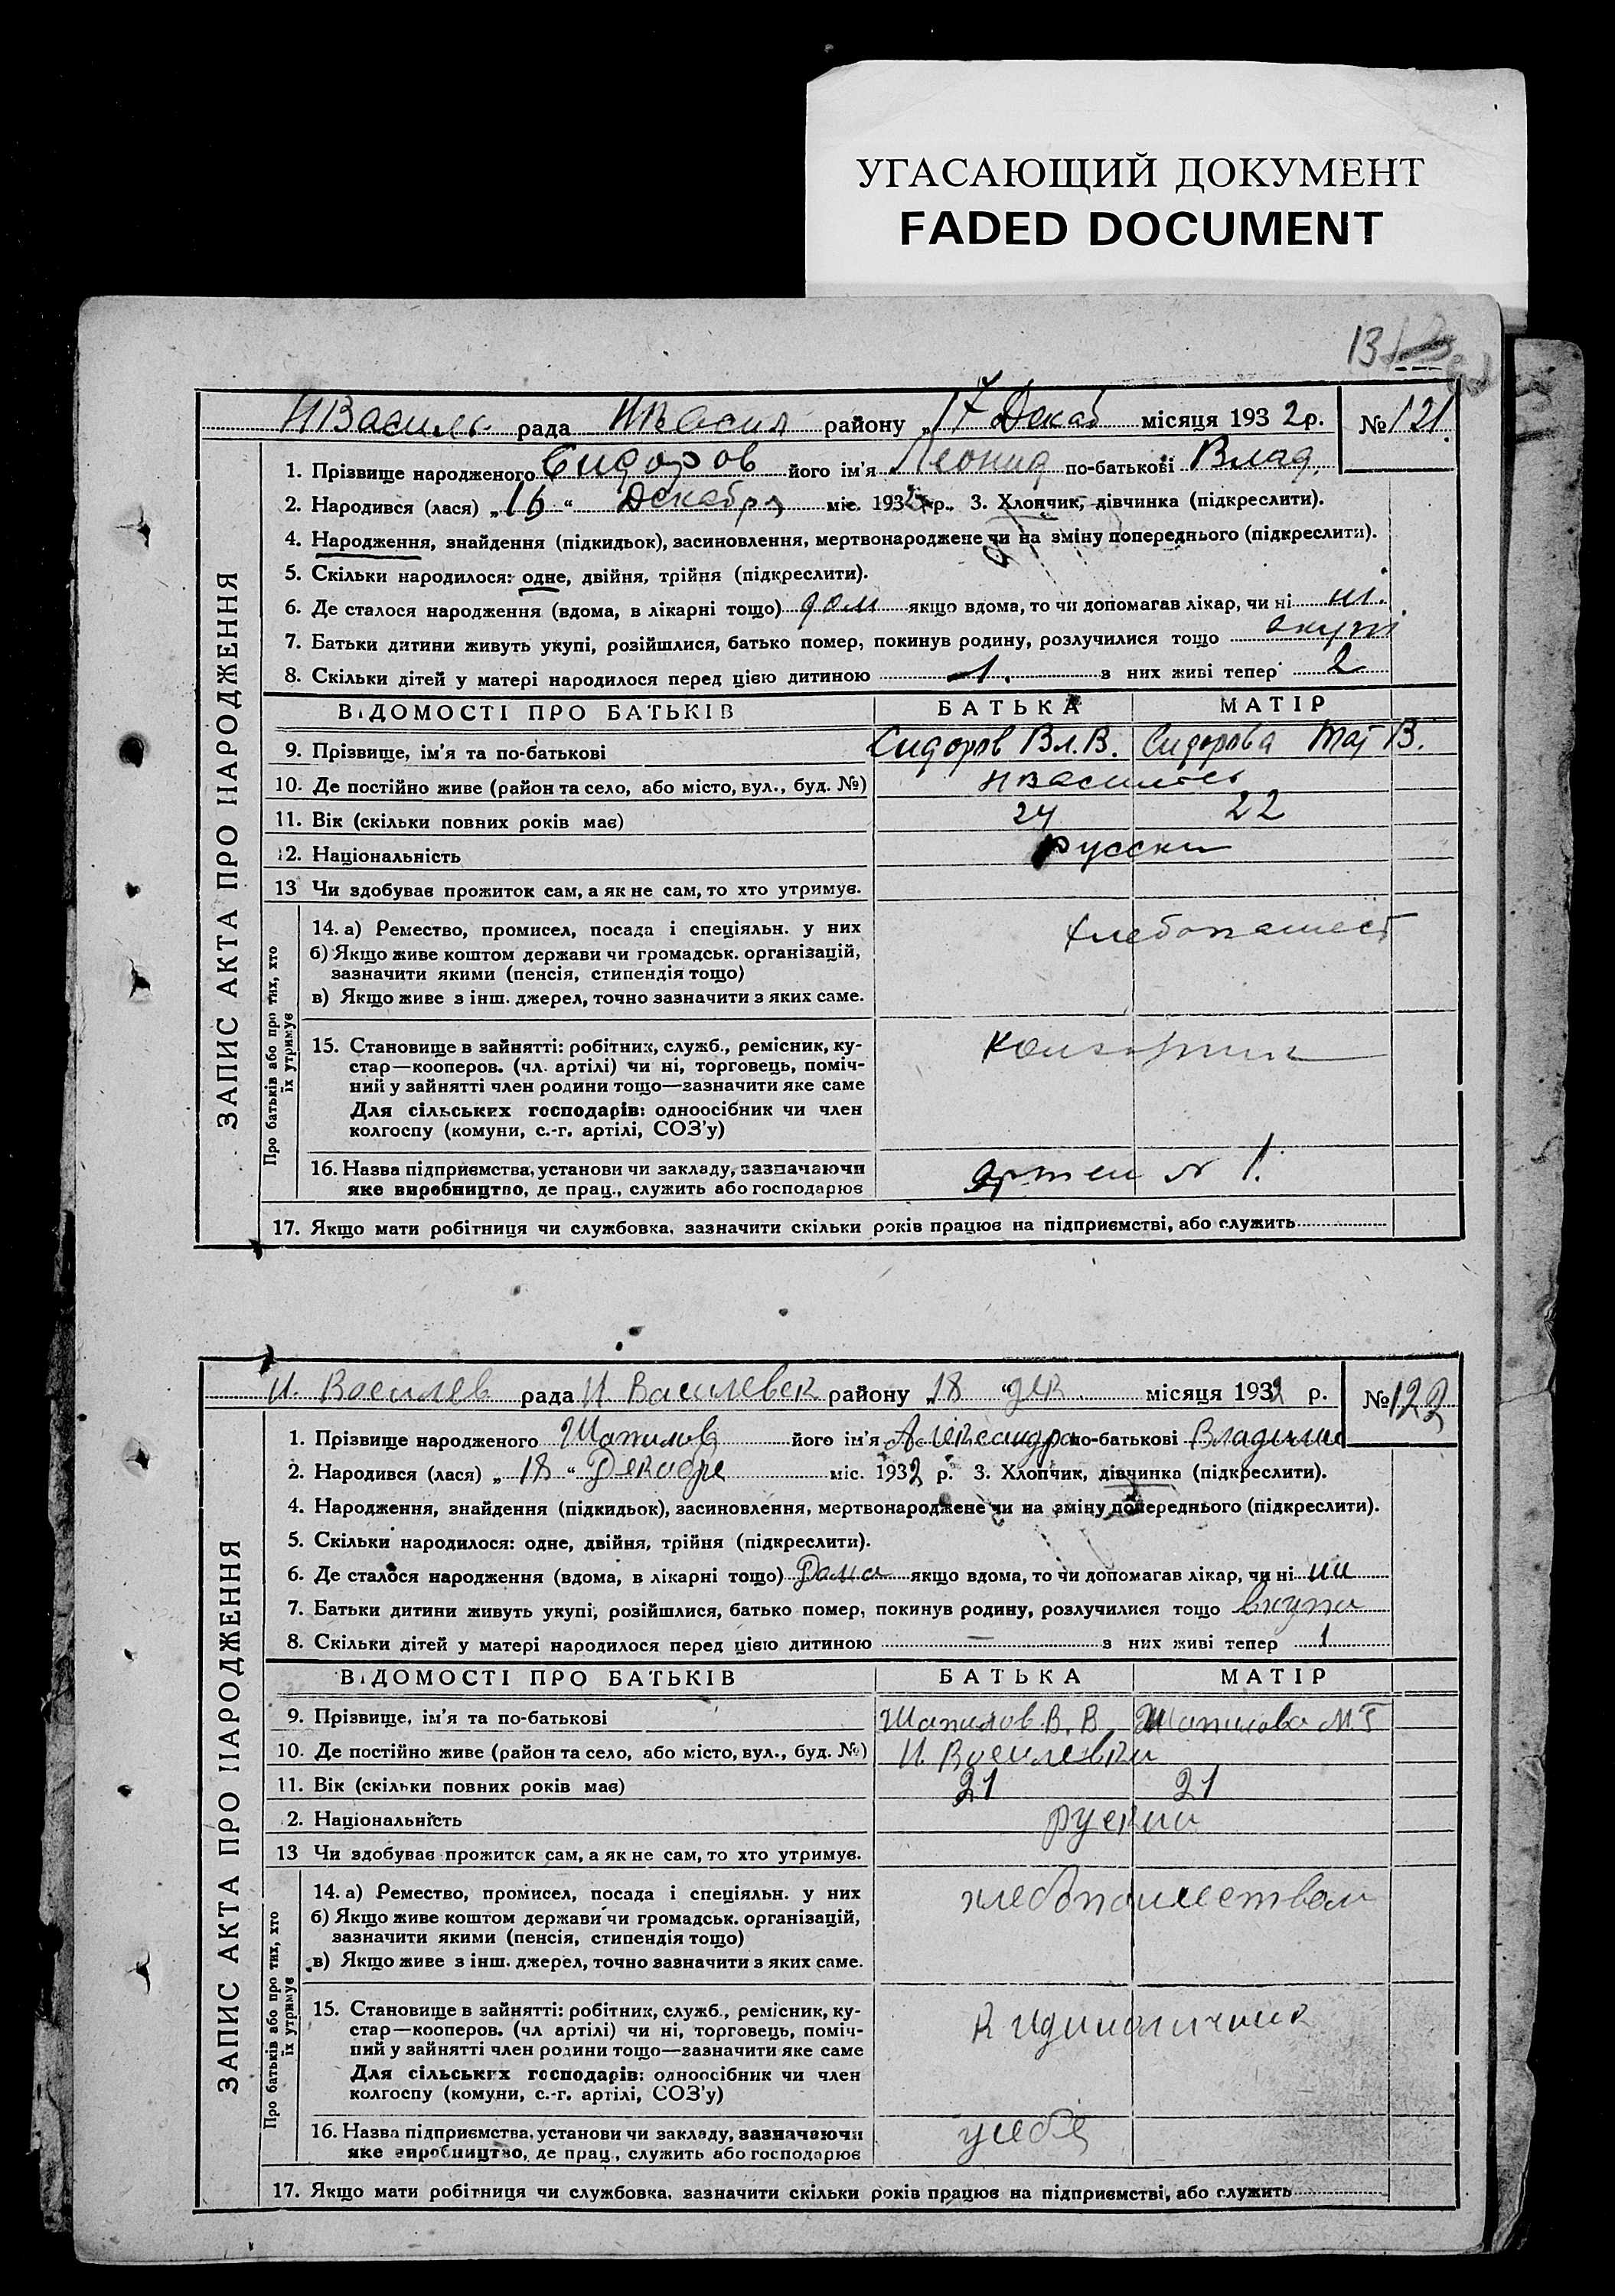 УГАСАЮЩИЙ ДОКУМЕНТ
FADED DOCUMENT
13
НВасиль рада НВасил району „17 Декаб місяця 1932 р. № 121.
1. Прізвище народженого Сидоров його ім'я Леонид по-батькові Влад.
2. Народився (лася) „16“ Декабря міс. 1932 р. 3. Хлопчик, дівчинка (підкреслити).
4. Народження, знайдення (підкидьок), засиновлення, мертвонароджене чи на зміну попереднього (підкреслити).
5. Скільки народилося: одне, двійня, трійня (підкреслити).
6. Де сталося народження (вдома, в лікарні тощо) дом якщо вдома, то чи допомагав лікар, чи ні ні.
7. Батьки дитини живуть укупі, розійшлися, батько помер, покинув родину, розлучилися тощо
8. Скільки дітей у матері народилося перед цією дитиною 1. з них живі тепер 2
ВІДОМОСТІ ПРО БАТЬКІВ БАТЬКА МАТІР
9. Прізвище, ім'я та по-батькові Сидоров Вл.В. Сидорова В.
10. Де постійно живе (район та село, або місто, вул., буд. №)
11. Вік (скільки повних років має) 24 22
12. Національність русски
13 Чи здобуває прожиток сам, а як не сам, то хто утримує.
14. а) Ремество, промисел, посада і спеціяльн. у них хлебопашест
б) Якщо живе коштом держави чи громадськ. організацій,
зазначити якими (пенсія, стипендія тощо)
в) Якщо живе з інш. джерел, точно зазначити з яких саме.
15. Становище в зайнятті: робітник, служб., ремісник, ку-
стар—кооперов. (чл. артілі) чи ні, торговець, поміч-
ний у зайнятті член родини тощо—зазначити яке саме
Для сільських господарів: одноосібник чи член
колгоспу (комуни, с.-г. артілі, СОЗ'у)
16. Назва підприємства, установи чи закладу, зазначаючи
яке виробництво, де прац., служить або господарює Артел № 1.
17. Якщо мати робітниця чи службовка, зазначити скільки років працює на підприємстві, або служить
ЗАПИС АКТА ПРО НАРОДЖЕННЯ
Про батьків або про тих, хто
їх утримує
Н. Василев рада Н Василевск району „18 “дек. місяця 1932 р. № 122
1. Прізвище народженого Шапилова його ім'я Александра по-батькові Владими
2. Народився (лася) „18“ Декабре міс. 1932 р. 3. Хлопчик, дівчинка (підкреслити).
4. Народження, знайдення (підкидьок), засиновлення, мертвонароджене чи на зміну попереднього (підкреслити).
5. Скільки народилося: одне, двійня, трійня (підкреслити).
6. Де сталося народження (вдома, в лікарні тощо) Дома якщо вдома, то чи допомагав лікар, чи ні ни
7. Батьки дитини живуть укупі, розійшлися, батько помер, покинув родину, розлучилися тощо вкупи
8. Скільки дітей у матері народилося перед цією дитиною — з них живі тепер 1
ВІДОМОСТІ ПРО БАТЬКІВ БАТЬКА МАТІР
9. Прізвище, ім'я та по-батькові Шапилов В. В Шапилова М.Г
10. Де постійно живе (район та село, або місто, вул., буд. №) Н. Василевки
11. Вік (скільки повних років має) 21 21
2. Національність руский
13 Чи здобуває прожиток сам, а як не сам, то хто утримує.
14. а) Ремество, промисел, посада і спеціяльн. у них хлебопашеством
б) Якщо живе коштом держави чи громадськ. організацій,
зазначити якими (пенсія, стипендія тощо)
в) Якщо живе з інш. джерел, точно зазначити з яких саме.
15. Становище в зайнятті: робітник, служб., ремісник, ку-
стар—кооперов. (чл артілі) чи ні, торговець, поміч-
ний у зайнятті член родини тощо—зазначити яке саме
Для сільських господарів: одноосібник чи член
колгоспу (комуни, с.-г. артілі, СОЗ'у)
16. Назва підприємства, установи чи закладу, зазначаючи
яке виробництво, де прац., служить або господарює усебя
17. Якщо мати робітниця чи службовка, зазначити скільки років працює на підприємстві, або служить
ЗАПИС АКТА ПРО НАРОДЖЕННЯ
Про батьків або про тих, хто
їх утримує